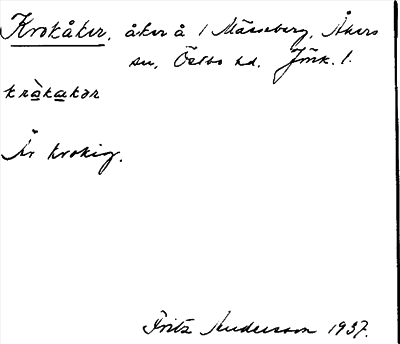 Krokåker, åker å / Mässeberg, Åkers
sn, Östbo hd. Jönk. l.
kròkakər
Är krokig.
Fritz Andersson 1937.